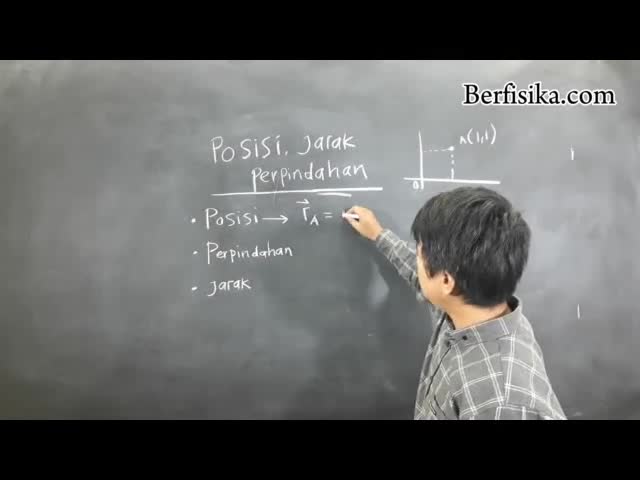 Berfisika.com
Posisi, Jarak
Perpindahan
A(1,1)
0
1
• Posisi → r⃗A =
• Perpindahan
• Jarak
1